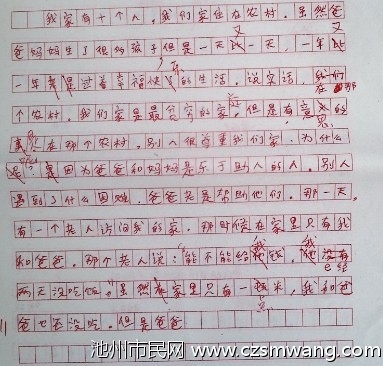 我家有十个人，我们家住在农村。虽然爸
爸妈妈生了很多孩子但是一天又一天，一年又
一年是过着幸福快乐的生活。说实话，我们在那
个农村，我们家是最穷的家庭。但是有意思的
是在那个农村，别人很尊重我们家，为什么
呢？是因为爸爸和妈妈是乐于助人的人，别人
遇到了什么困难，爸爸老是帮助他们。那一天，
有一个老人访问我的家。那时候在家里只有我
和爸爸。那个老人说："能不能给我钱，我没有
两天没吃饭。"虽然家里只有一点米，我和爸
爸也还没吃。但是爸爸
池州市民网 www.czsmwang.com